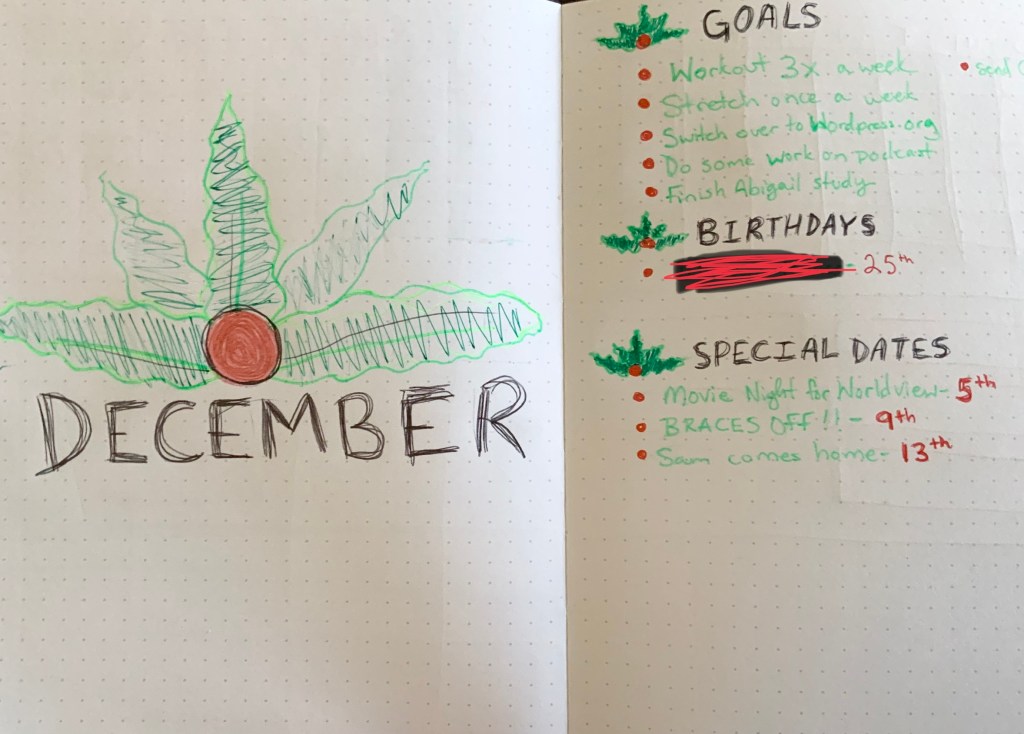 DECEMBER
GOALS
Workout 3x a week
• send
Stretch once a week
Switch over to Wordpress.org
Do some work on podcast
Finish Abigail study
BIRTHDAYS
- 25th
SPECIAL DATES
Movie Night for Worldview- 5th
BRACES OFF!! - 9th
Sam comes home- 13th